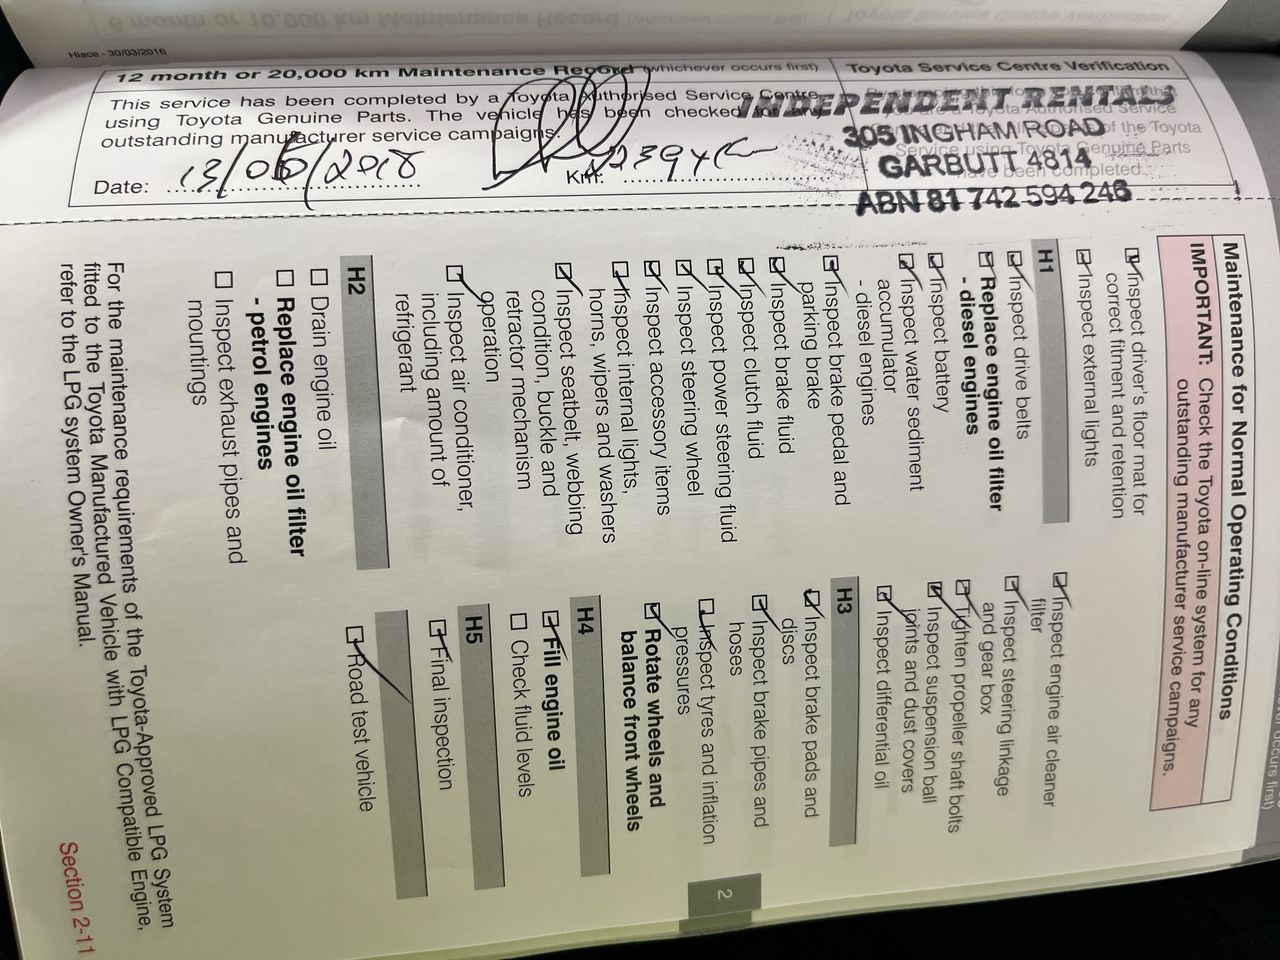 Hiace - 30/03/2016
12 month or 20,000 km Maintenance Record (whichever occurs first)
Toyota Service Centre Verification
This service has been completed by a Toyota Authorised Service Centre
using Toyota Genuine Parts. The vehicle has been checked for any
outstanding manufacturer service campaigns.
Date: 13/06/2018
Km:
INDEPENDENT RENTALS
305 INGHAM ROAD
GARBUTT 4814
ABN 81 742 594 246
Maintenance for Normal Operating Conditions
IMPORTANT: Check the Toyota on-line system for any
outstanding manufacturer service campaigns.
Inspect driver's floor mat for
correct fitment and retention
Inspect external lights
H1
Inspect drive belts
Replace engine oil filter
- diesel engines
Inspect battery
Inspect water sediment
accumulator
- diesel engines
Inspect brake pedal and
parking brake
Inspect brake fluid
Inspect clutch fluid
Inspect power steering fluid
Inspect steering wheel
Inspect accessory items
Inspect internal lights,
horns, wipers and washers
Inspect seatbelt, webbing
condition, buckle and
retractor mechanism
operation
Inspect air conditioner,
including amount of
refrigerant
H2
Drain engine oil
Replace engine oil filter
- petrol engines
Inspect exhaust pipes and
mountings
Inspect engine air cleaner
filter
Inspect steering linkage
and gear box
Tighten propeller shaft bolts
Inspect suspension ball
joints and dust covers
Inspect differential oil
H3
Inspect brake pads and
discs
Inspect brake pipes and
hoses
Inspect tyres and inflation
pressures
Rotate wheels and
balance front wheels
H4
Fill engine oil
Check fluid levels
H5
Final inspection
Road test vehicle
For the maintenance requirements of the Toyota-Approved LPG System
fitted to the Toyota Manufactured Vehicle with LPG Compatible Engine,
refer to the LPG system Owner's Manual.
2
Section 2-11